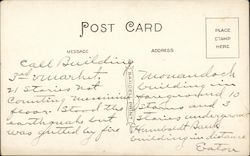 POST CARD
PLACE
STAMP
HERE
MESSAGE
ADDRESS
Call Building
3rd & Market
21 Stories not
Counting mezzanine
floor. Stood the
earthquake but
was gutted by fire
Monandock
building in
foreground 10
Stories and 3
Stories underground
Humboldt Bank
building in distance